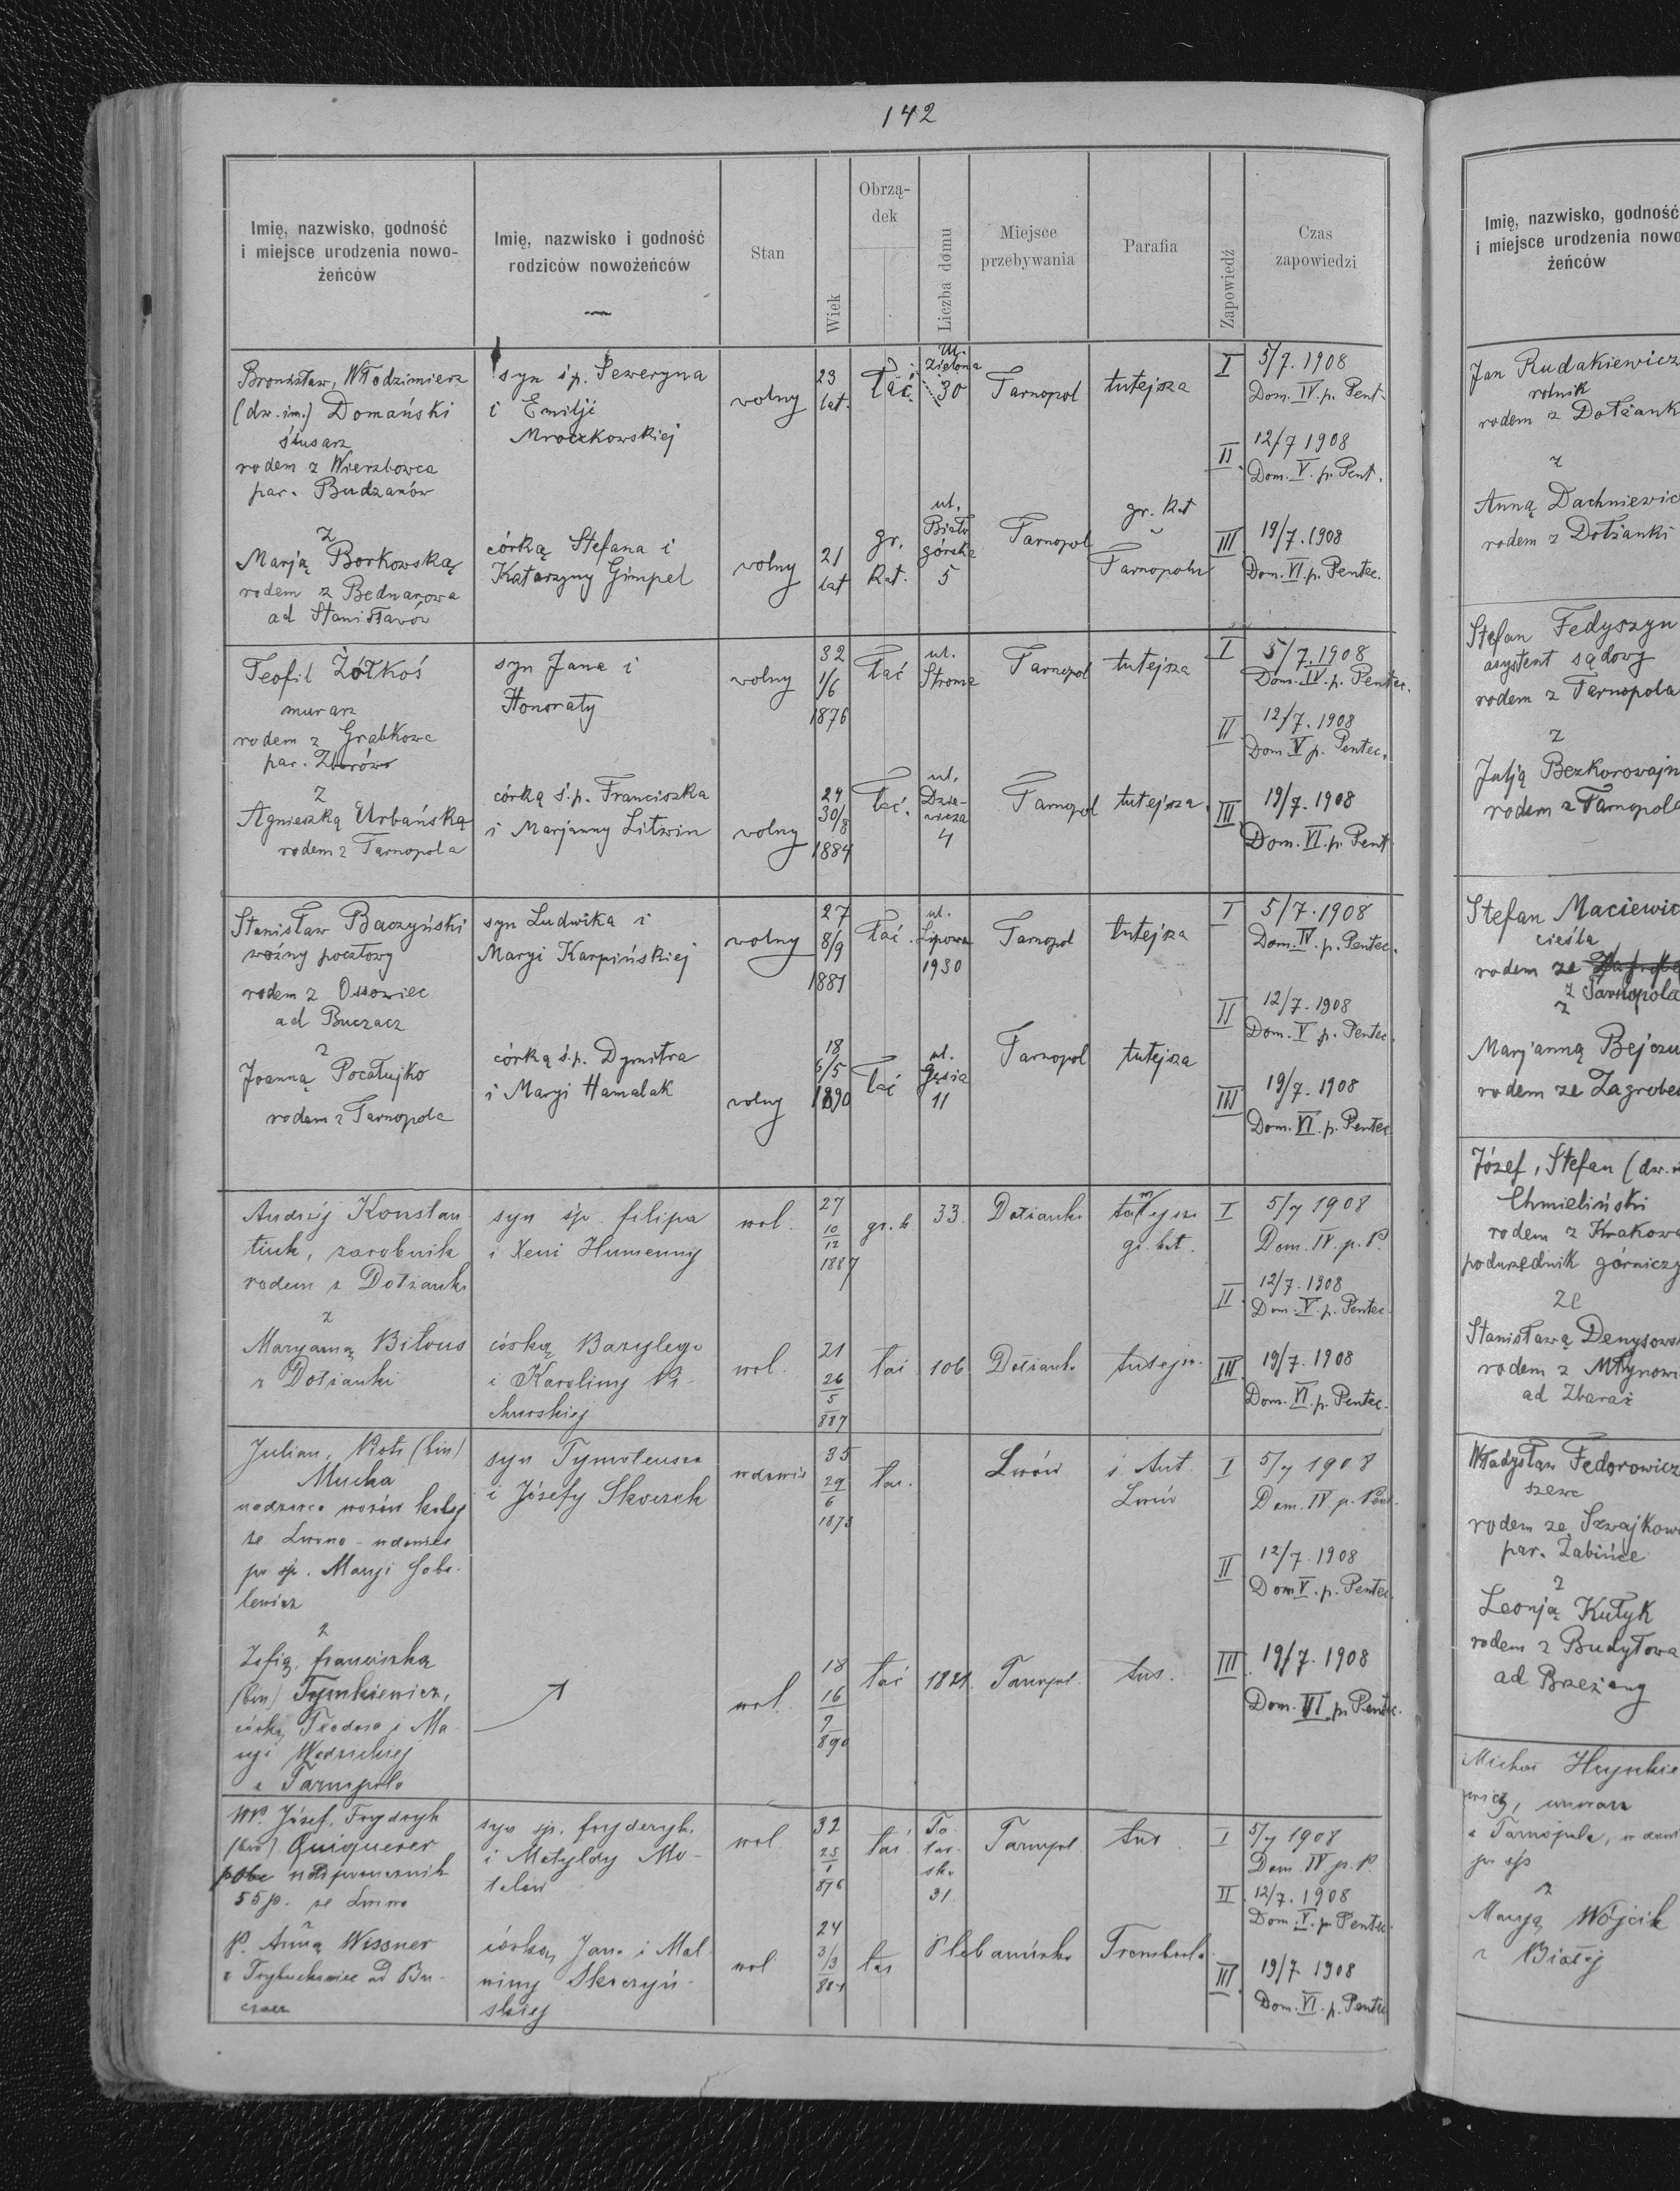 142
Imię, nazwisko, godność
i miejsce urodzenia nowo-
żeńców
Imię, nazwisko i godność
rodziców nowożeńców
Stan
Wiek
Obrzą-
dek
Liczba domu
Miejsce
przebywania
Parafia
Zapowiedź
Czas
zapowiedzi
Bronisław, Włodzimierz
(dw. im.) Domański
ślusarz
rodem z Wierzbowca
par. Budzanów
syn ś.p. Seweryna
i Emilji
Mroczkowskiej
wolny
23
lat.
łać.
ul.
Zielona
30
Tarnopol
tutejsza
I
5/7. 1908
Dom. IV. p. Pent.
II.
12/7 1908
Dom. V. p. Pent.
z
Marją Borkowską
rodem z Bednarowa
ad Stanisławów
córką Stefana i
Katarzyny Gimpel
wolny
21
lat
gr.
Kat.
ul.
Biało
górska
5
Tarnopol
gr. Kat
Tarnopolu
III
19/7. 1908
Dom. VI. p. Pentec.
Teofil Żółkoś
murarz
rodem z Grabkowa
par. Zborów
syn Jana i
Honoraty
wolny
32
1/6
1876
łać
ul.
Stroma
Tarnopol
tutejsza
I
5/7. 1908
Dom. IV. p. Pentec.
II
12/7. 1908
Dom. V p. Pentec.
z
Agnieszką Urbańską
rodem z Tarnopola
córką ś.p. Franciszka
i Marjanny Litwin
wolny
24
30/8
1884
łać.
ul.
4
Tarnopol
tutejsza.
III
19/7. 1908
Dom. VI. p. Pent
Stanisław Baczyński
woźny pocztowy
rodem z Ossowiec
ad Buczacz
syn Ludwika i
Maryi Karpińskiej
wolny
27
8/9
1881
łać.
ul.
Lipowa
1930
Tarnopol
tutejsza
I
5/7. 1908
Dom. IV. p. Pentec.
II
12/7. 1908
Dom. V p. Pentec.
z
Joanną Pocałujko
rodem z Tarnopola
córką ś.p. Dymitra
i Maryi Hamalak
wolny
18
6/5
1890
łać
ul.
Gęsia
11
Tarnopol
tutejsza
III
19/7. 1908
Dom. VI. p. Pentec.
Andrzej Konstan-
tiuk, zarobnik
rodem z Dołżanki
syn śp. filipa
i Xeni Humenny
wol.
27
10
12
1887
gr. k
33.
Dołżanka
gr. kat.
I
5/7 1908
Dom. IV. p. P.
II.
12/7. 1908
Dom. V. p. Pentec.
z
Maryanną Biłous
z Dołżanki
córką Bazylego
i Karoliny Pi-
churskiej
wol.
21
26
5
887
łać
106
Dołżanka
tutejsz.
III.
19/7. 1908
Dom. VI. p. Pentec.
Julian, Piotr (bin)
Mucha
nadzorca wozów kolej
ze Lwowa - wdowiec
po śp. Maryi Sobo-
lewicz
syn Tymoteusza
i Józefy Skorzek
wdowiec
35
29
6
1873
łać.
Lwów
ś. Ant.
Lwów
I
5/7 1908
Dom. IV p. Pent.
II
12/7. 1908
Dom V. p. Pentec.
z
Zofią, franciszką
(bin) Tymkiewicz,
córką Teodora i Ma-
ryi Wodzickiej
z Tarnopola
wol.
18
16
9
890
łać
1821.
Tarnopol.
tus.
III.
19/7. 1908
Dom. VI. p. Pentec.
WP. Józef, Frydryk
(bin) Quiquerer
nadporucznik
55 p. ze Lwowa
syn śp. fryderyka
i Matyldy Mo-
telów
wol.
32
25
1
876
łać
Ta-
tar-
ska
31
Tarnopol
tus.
I
5/7 1908
Dom. IV p. P.
II.
12/7. 1908
Dom. V. p. Pentec.
z
P. Anną Wissner
z Trybuchowiec ad Bu-
czacz
córką Jana i Mal-
winy Skoczyń-
skiej
wol
24
3/3
884
łać
Plebanówka
Trembowla.
III.
19/7 1908
Dom. VI. p. Pentec
Imię, nazwisko, godność
i miejsce urodzenia nowo
żeńców
Jan Rudakiewicz
rolnik
rodem z Dołżank
z
Anną Dachniewic
rodem z Dołżanki
Stefan Fedyszyn
asystent sądowy
rodem z Tarnopola
z
Julją Bezkorowajn
rodem z Tarnopola
Stefan Maciewic
cieśla
rodem ze
z Tarnopola
z
Marjanną Bejczu
rodem ze Zagrobel
Józef, Stefan (dw. i
Chmieliński
rodem z Krakowa
podurzędnik górniczy
ze
Stanisławą Denysows
rodem z Młynow
ad Zbaraż
Władysław Fedorowicz
szewc
rodem ze Szwajkow
par. Żabińce
z
Leonją Kułyk
rodem z Budyłowa
ad Brzeżany
Michał Hrynkie
wicz, murarz
z Tarnopola, wdowi
po śp
z
Maryą Wójcik
z Białej